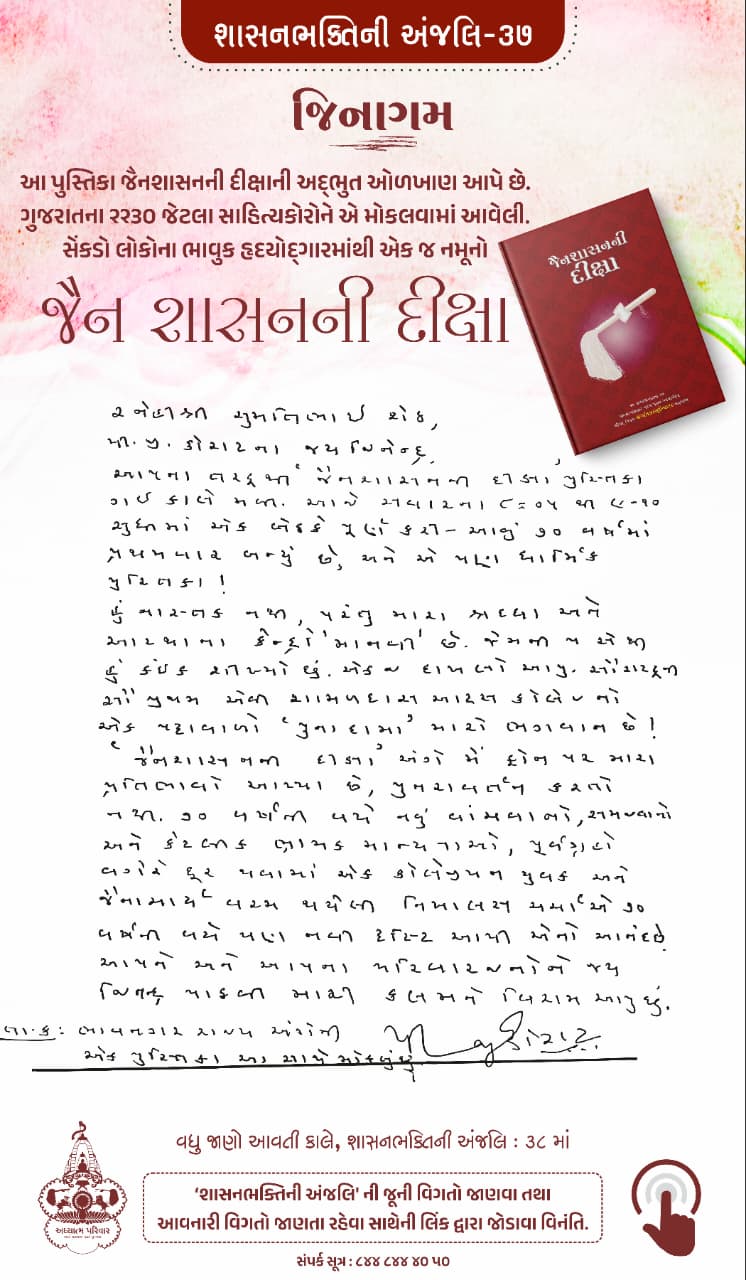 શાસનભક્તિની અંજલિ-૩૭
જિનાગમ
આ પુસ્તિકા જૈનશાસનની દીક્ષાની અદ્ભુત ઓળખાણ આપે છે.
ગુજરાતના ૨૨૩૦ જેટલા સાહિત્યકોરોને એ મોકલવામાં આવેલી.
સેંકડો લોકોના ભાવુક હૃદયોદ્ગારમાંથી એક જ નમૂનો
જૈનશાસનની
દીક્ષા
જૈન શાસનની દીક્ષા
સ્નેહીશ્રી સુમતિભાઈ શેઠ,
પી.જી. કોરાટના જય જિનેન્દ્ર.
આપના તરફથી જૈનશાસનની દીક્ષા પુસ્તિકા
ગઈ કાલે મળી. આજે સવારના ૮=૦૫ થી ૯-૧૦
સુધીમાં એક બેઠકે પૂર્ણ કરી - આવું ૭૦ વર્ષમાં
પ્રથમવાર બન્યું છે, અને એ પણ ધાર્મિક
પુસ્તિકા!
હું નાસ્તિક નથી, પરંતુ મારી શ્રદ્ધા અને
આસ્થાના કેન્દ્રો 'માનવી' છે. જેમની પાસેથી
હું કંઈક શીખ્યો છું. એક જ દાખલો આપુ. સૌરાષ્ટ્રની
સૌ પ્રથમ એવી શામળદાસ આર્ટસ કોલેજનો
એક પટાવાળો 'પુનાદામા' મારો ભગવાન છે!
'જૈનશાસનની દીક્ષા' અંગે મેં ફોન પર મારા
પ્રતિભાવો આપ્યા છે, પુનરાવર્તન કરતો
નથી. ૭૦ વર્ષની વયે નવું વાંચવાનો, સમજવાનો
અને કેટલીક ભ્રામક માન્યતાઓ, પૂર્વગ્રહો
વગેરે દૂર થવામાં એક કોલેજીયન યુવક અને
જૈનાચાર્ય વચ્ચે થયેલી નિખાલસ ચર્ચાએ ૭૦
વર્ષની વયે પણ નવી દૃષ્ટિ આપી એનો આનંદ છે.
આપને અને આપના પરિવારજનોને જય
જિનેન્દ્ર પાઠવી મારી કલમને વિરામ આપુ છું.
તા.ક: ભાવનગર રાજ્ય અંગેની
એક પુસ્તિકા આ સાથે મોકલું છું
પી જી કોરાટ
વધુ જાણો આવતી કાલે, શાસનભક્તિની અંજલિ : ૩૮ માં
'શાસનભક્તિની અંજલિ' ની જૂની વિગતો જાણવા તથા
આવનારી વિગતો જાણતા રહેવા સાથેની લિંક દ્વારા જોડાવા વિનંતિ.
અધ્યાત્મ પરિવાર
સંપર્ક સૂત્ર : ૮૪૪ ૮૪૪ ૪૦ ૫૦